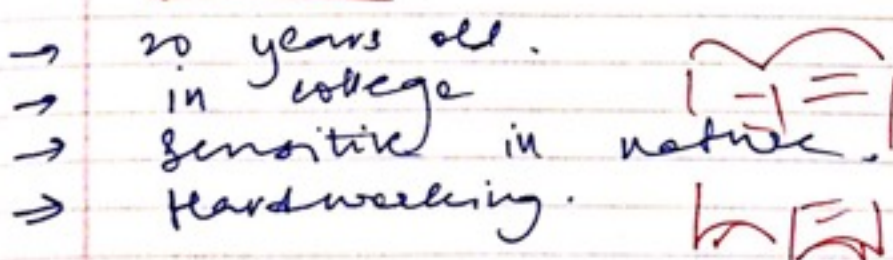 → 20 years old.
→ in college
→ Sensitive in nature.
→ Hardworking.